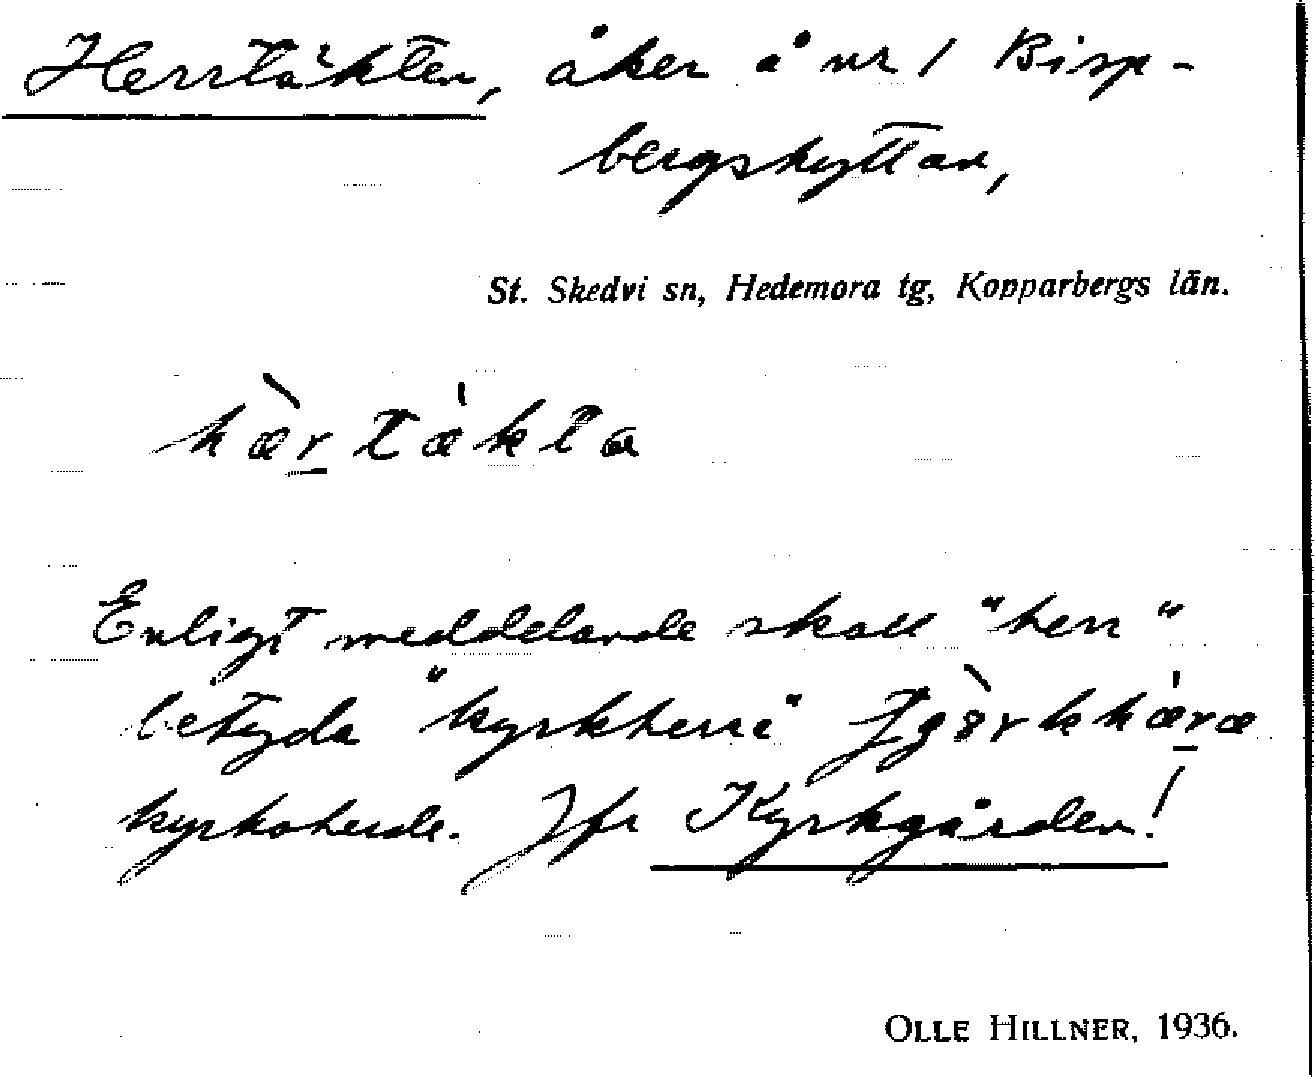 Herrtäkten, åker å nr 1 Bisp-
bergshyttan,
St. Skedvi sn, Hedemora tg, Kopparbergs län.
hæ̀r̲tæ̍kta
Enligt meddelande skall "herr"
betyda "kyrkherre"
kyrkoherde. Jfr Kyrkgården!
OLLE HILLNER, 1936.